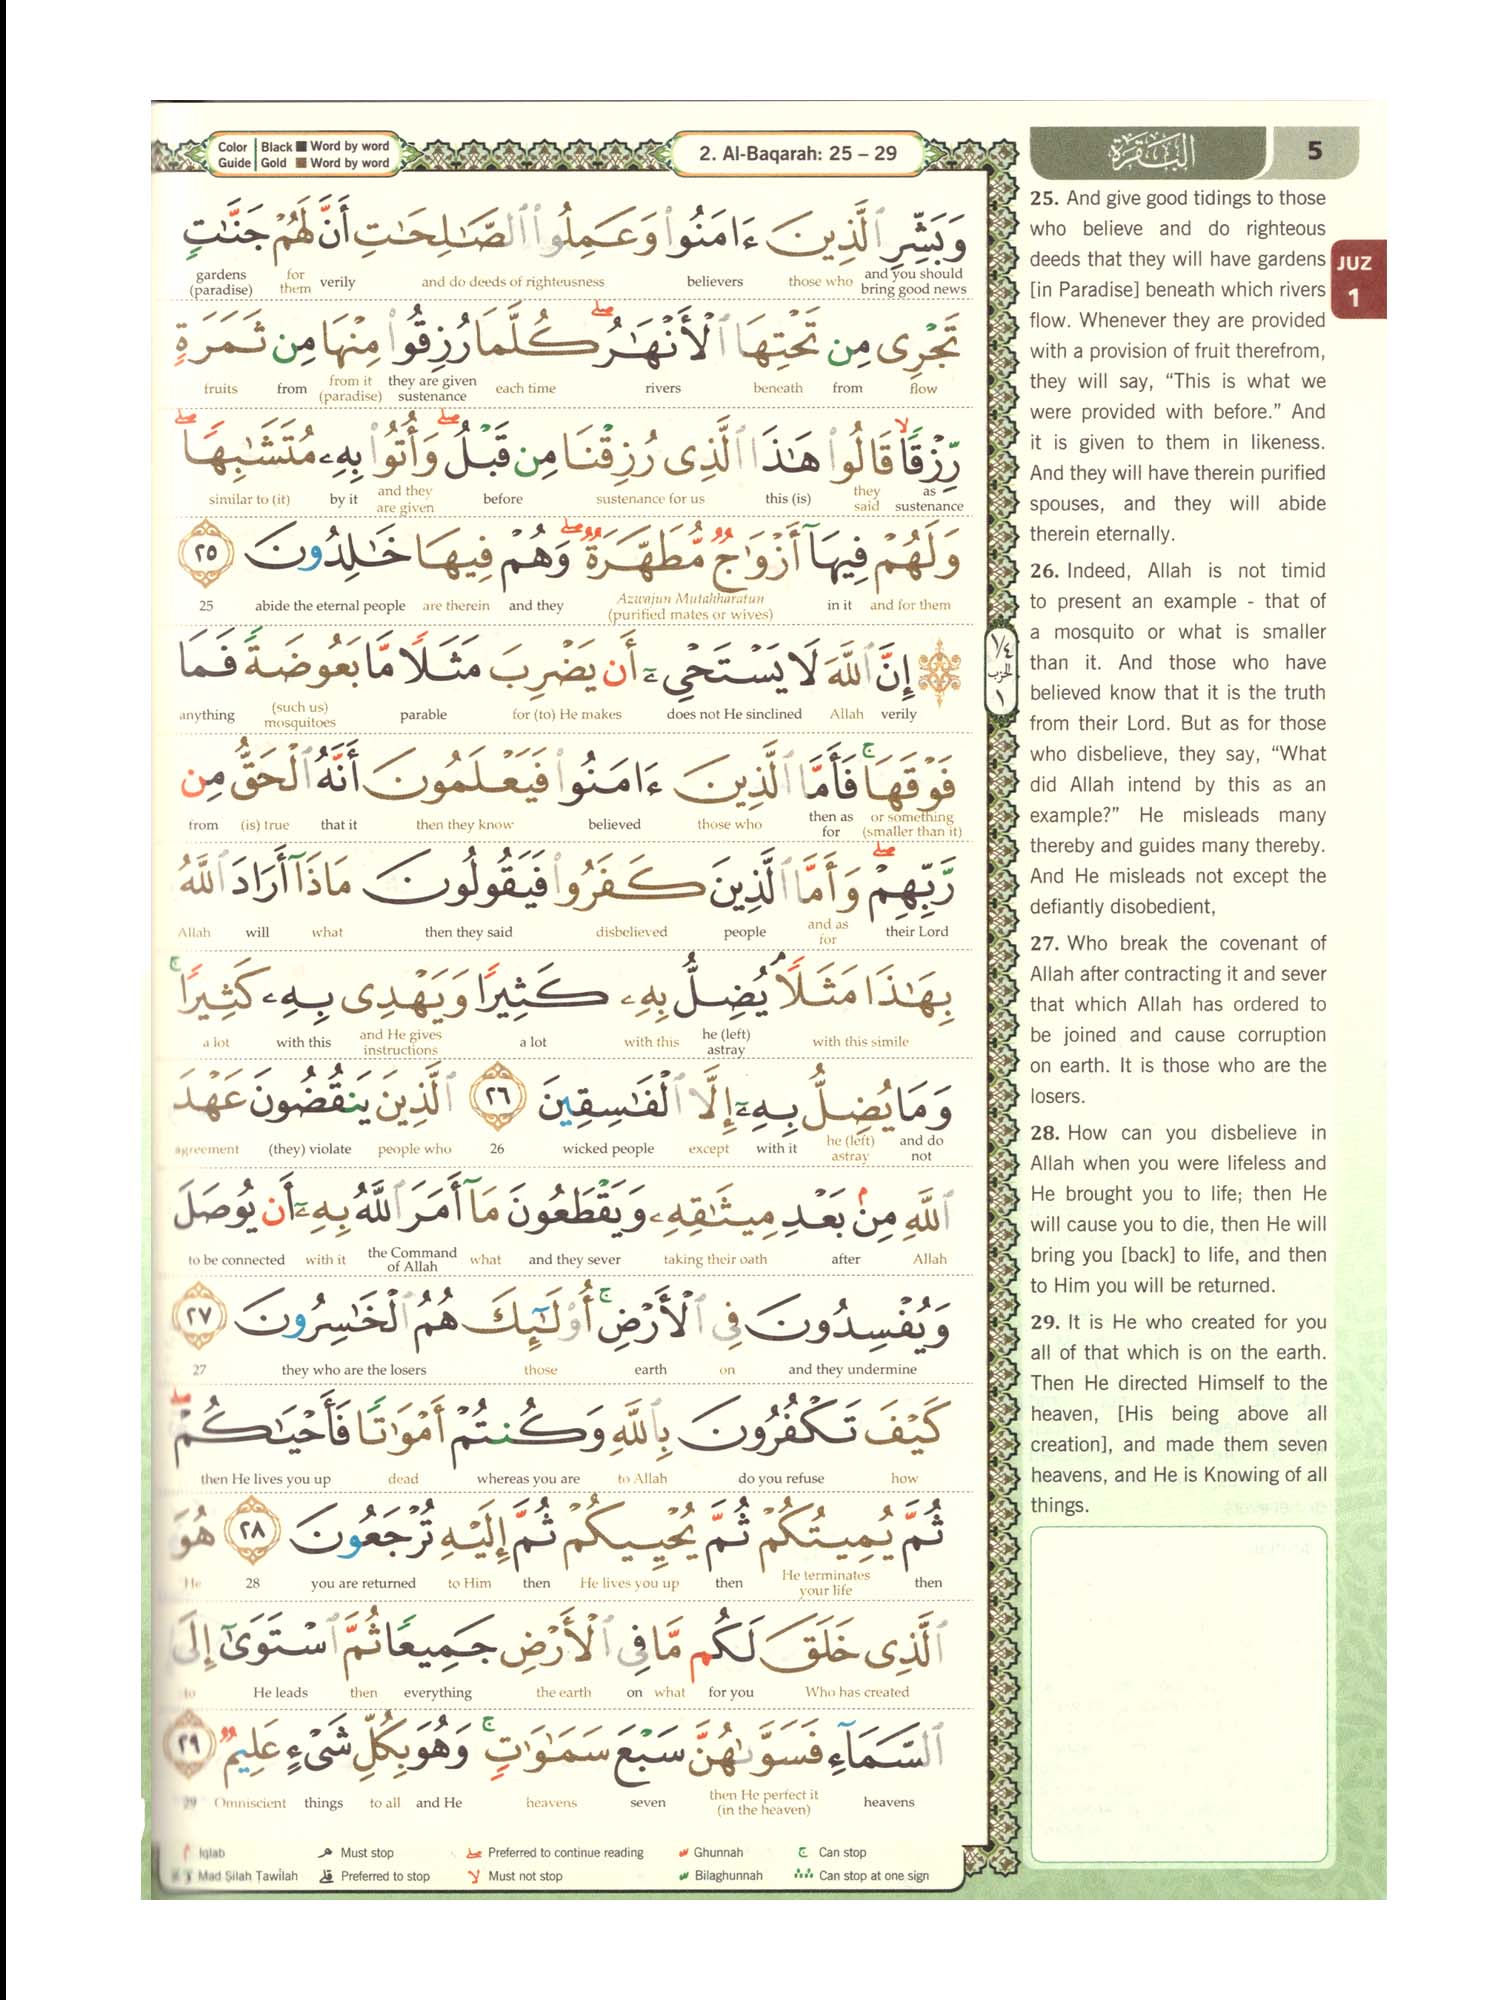 Color Guide
Black ■ Word by word
Gold ■ Word by word
2. Al-Baqarah: 25 – 29
البقرة
5
JUZ
1
وَبَشِّرِ ٱلَّذِينَ ءَامَنُوا۟ وَعَمِلُوا۟ ٱلصَّـٰلِحَـٰتِ أَنَّ لَهُمْ جَنَّـٰتٍ
and you should bring good news those who believers and do deeds of righteusness verily for them gardens (paradise)
تَجْرِى مِن تَحْتِهَا ٱلْأَنْهَـٰرُ ۖ كُلَّمَا رُزِقُوا۟ مِنْهَا مِن ثَمَرَةٍ
flow from beneath rivers each time they are given sustenance from it (paradise) from fruits
رِّزْقًا ۙ قَالُوا۟ هَـٰذَا ٱلَّذِى رُزِقْنَا مِن قَبْلُ ۖ وَأُتُوا۟ بِهِۦ مُتَشَـٰبِهًا ۖ
as sustenance they said this (is) sustenance for us before and they are given by it similar to (it)
وَلَهُمْ فِيهَآ أَزْوَٰجٌ مُّطَهَّرَةٌ ۖ وَهُمْ فِيهَا خَـٰلِدُونَ ٢٥
and for them in it Azwajun Mutahharatun (purified mates or wives) and they are therein abide the eternal people 25
إِنَّ ٱللَّهَ لَا يَسْتَحْىِۦٓ أَن يَضْرِبَ مَثَلًا مَّا بَعُوضَةً فَمَا
verily Allah does not He sinclined for (to) He makes parable (such us) mosquitoes anything
١/٤ الحزب ١
فَوْقَهَا ۚ فَأَمَّا ٱلَّذِينَ ءَامَنُوا۟ فَيَعْلَمُونَ أَنَّهُ ٱلْحَقُّ مِن
or something (smaller than it) then as for those who believed then they know that it (is) true from
رَّبِّهِمْ ۖ وَأَمَّا ٱلَّذِينَ كَفَرُوا۟ فَيَقُولُونَ مَاذَآ أَرَادَ ٱللَّهُ
their Lord and as for people disbelieved then they said what will Allah
بِهَـٰذَا مَثَلًا ۘ يُضِلُّ بِهِۦ كَثِيرًا وَيَهْدِى بِهِۦ كَثِيرًا ۚ
with this simile he (left) astray with this a lot and He gives instructions with this a lot
وَمَا يُضِلُّ بِهِۦٓ إِلَّا ٱلْفَـٰسِقِينَ ٢٦ ٱلَّذِينَ يَنقُضُونَ عَهْدَ
and do not he (left) astray with it except wicked people 26 people who (they) violate agreement
ٱللَّهِ مِنۢ بَعْدِ مِيثَـٰقِهِۦ وَيَقْطَعُونَ مَآ أَمَرَ ٱللَّهُ بِهِۦٓ أَن يُوصَلَ
Allah after taking their oath and they sever what the Command of Allah with it to be connected
وَيُفْسِدُونَ فِى ٱلْأَرْضِ ۚ أُو۟لَـٰٓئِكَ هُمُ ٱلْخَـٰسِرُونَ ٢٧
and they undermine on earth those they who are the losers 27
كَيْفَ تَكْفُرُونَ بِٱللَّهِ وَكُنتُمْ أَمْوَٰتًا فَأَحْيَـٰكُمْ ۖ
how do you refuse to Allah whereas you are dead then He lives you up
ثُمَّ يُمِيتُكُمْ ثُمَّ يُحْيِيكُمْ ثُمَّ إِلَيْهِ تُرْجَعُونَ ٢٨ هُوَ
then He terminates your life then He lives you up then to Him you are returned 28 He
ٱلَّذِى خَلَقَ لَكُم مَّا فِى ٱلْأَرْضِ جَمِيعًا ثُمَّ ٱسْتَوَىٰٓ إِلَى
Who has created for you what on the earth everything then He leads to
ٱلسَّمَآءِ فَسَوَّىٰهُنَّ سَبْعَ سَمَـٰوَٰتٍ ۚ وَهُوَ بِكُلِّ شَىْءٍ عَلِيمٌ ٢٩
heavens then He perfect it (in the heaven) seven heavens and He to all things Omniscient 29
Iqlab Must stop Preferred to continue reading Ghunnah Can stop
Mad Silah Tawilah Preferred to stop Must not stop Bilaghunnah Can stop at one sign
25. And give good tidings to those
who believe and do righteous
deeds that they will have gardens
[in Paradise] beneath which rivers
flow. Whenever they are provided
with a provision of fruit therefrom,
they will say, “This is what we
were provided with before.” And
it is given to them in likeness.
And they will have therein purified
spouses, and they will abide
therein eternally.
26. Indeed, Allah is not timid
to present an example - that of
a mosquito or what is smaller
than it. And those who have
believed know that it is the truth
from their Lord. But as for those
who disbelieve, they say, “What
did Allah intend by this as an
example?” He misleads many
thereby and guides many thereby.
And He misleads not except the
defiantly disobedient,
27. Who break the covenant of
Allah after contracting it and sever
that which Allah has ordered to
be joined and cause corruption
on earth. It is those who are the
losers.
28. How can you disbelieve in
Allah when you were lifeless and
He brought you to life; then He
will cause you to die, then He will
bring you [back] to life, and then
to Him you will be returned.
29. It is He who created for you
all of that which is on the earth.
Then He directed Himself to the
heaven, [His being above all
creation], and made them seven
heavens, and He is Knowing of all
things.